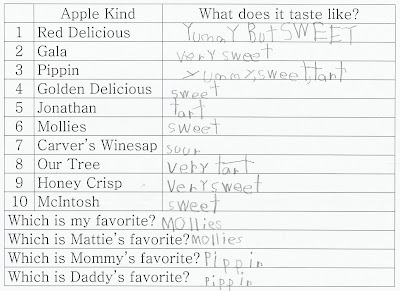 Apple Kind What does it taste like?
1 Red Delicious Yummy But SWEET
2 Gala very sweet
3 Pippin yummy,sweet,tart
4 Golden Delicious sweet
5 Jonathan tart
6 Mollies sweet
7 Carver's Winesap sour
8 Our Tree very tart
9 Honey Crisp Very sweet
10 McIntosh sweet
Which is my favorite? Mollies
Which is Mattie's favorite? Mollies
Which is Mommy's favorite? Pippin
Which is Daddy's favorite? Pippin